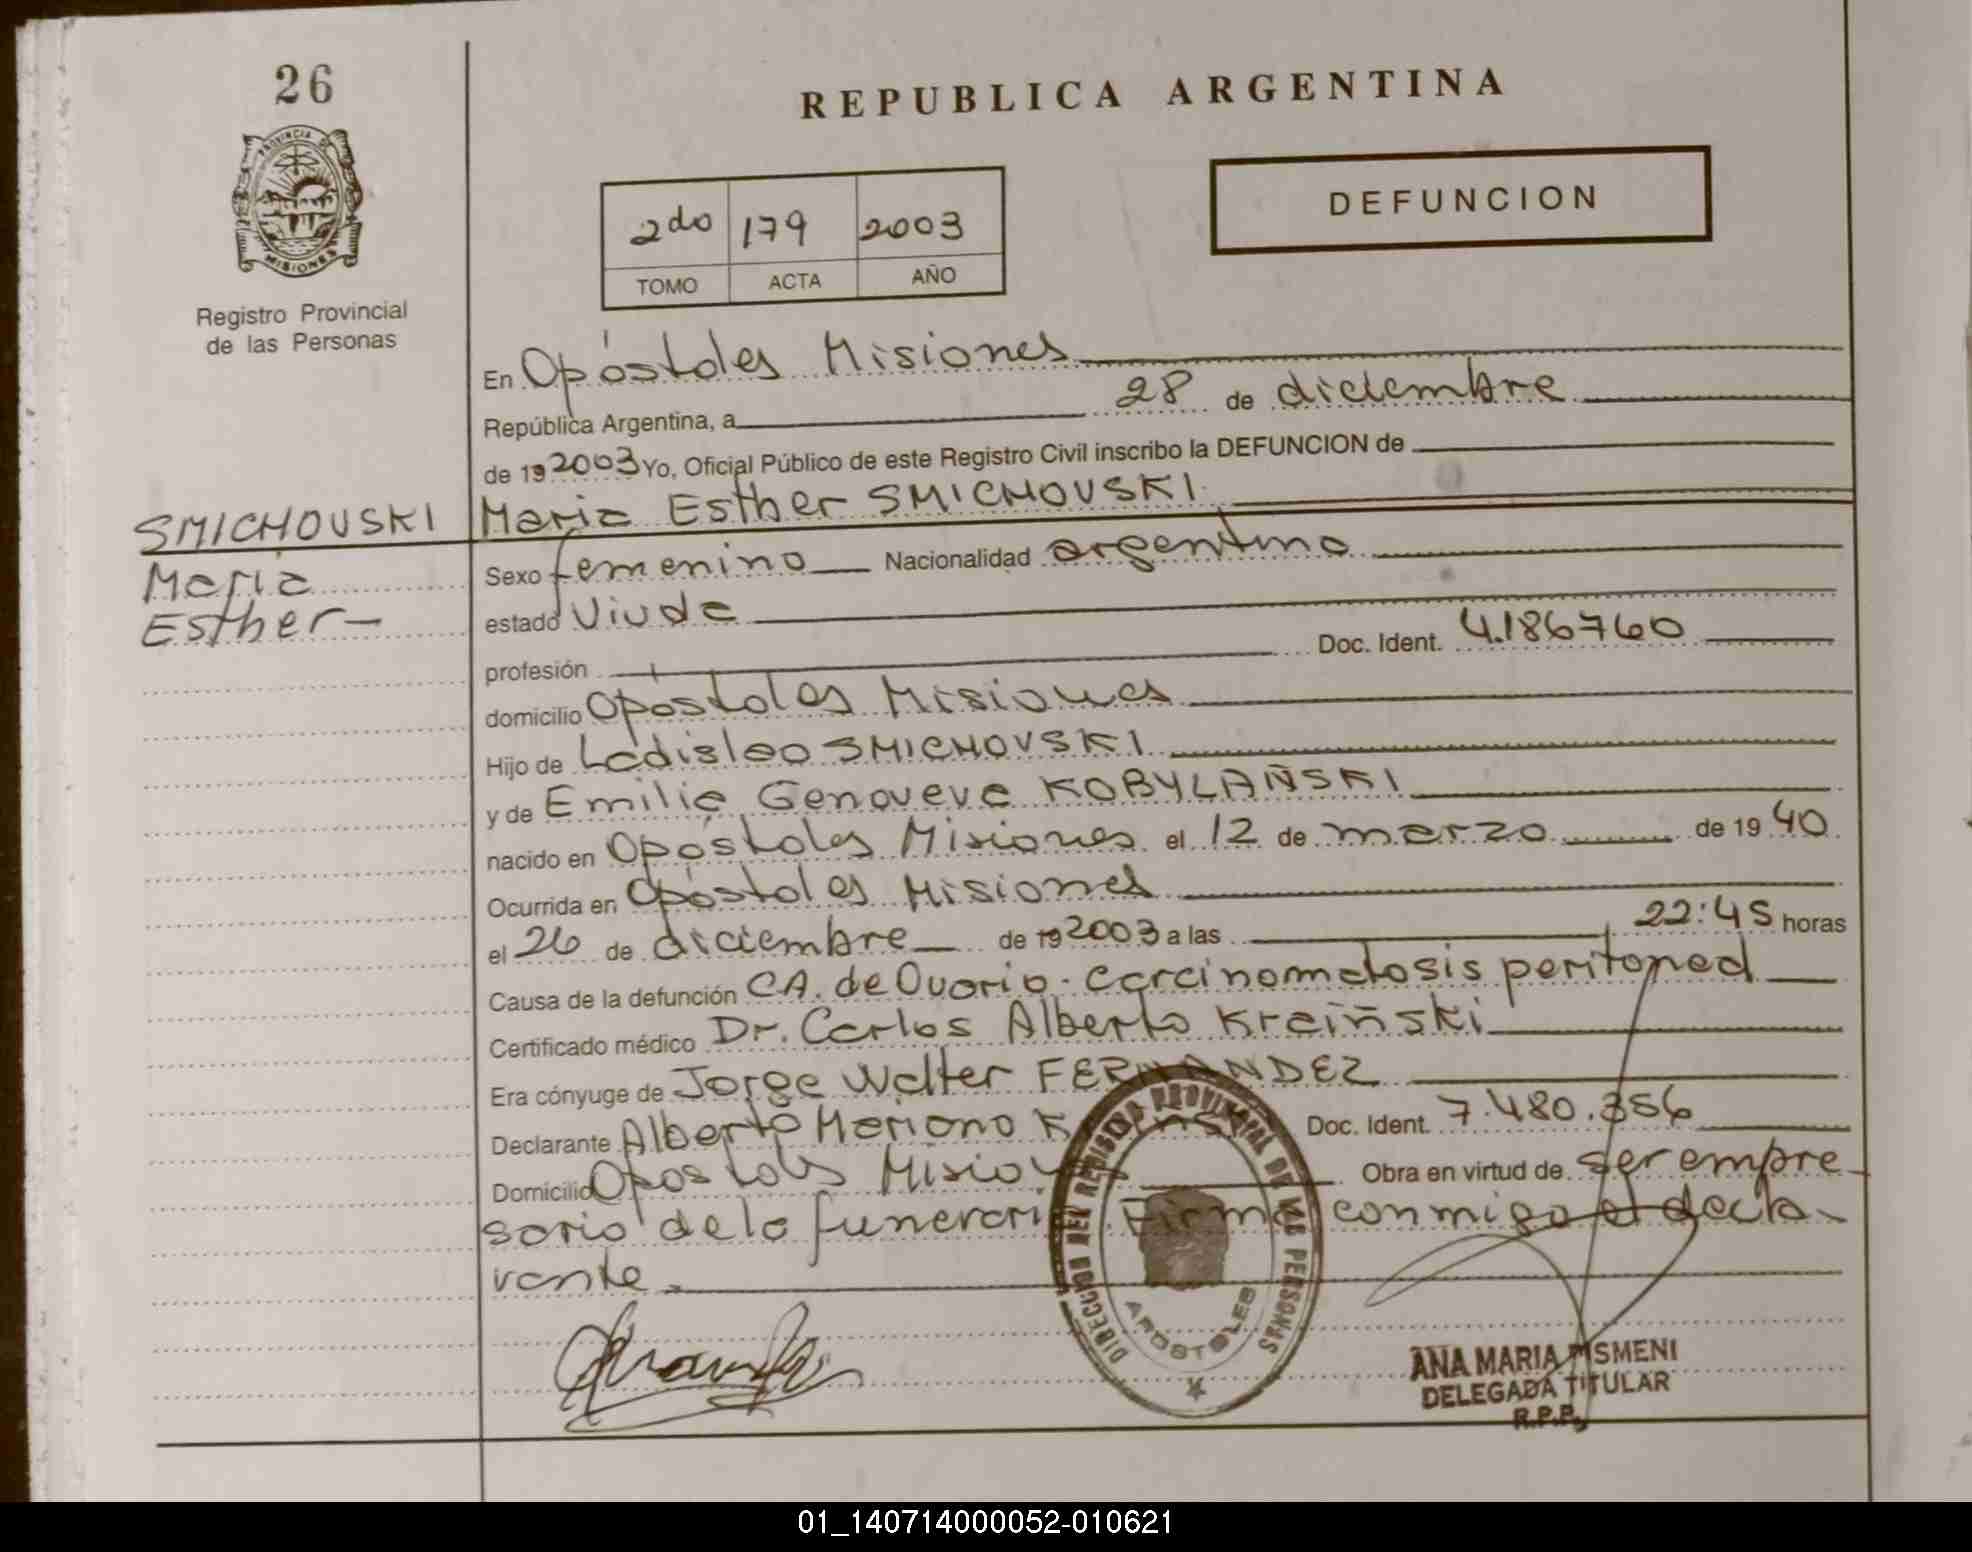 26
REPUBLICA ARGENTINA
PROVINCIA DE
MISIONES
Registro Provincial
de las Personas
2do 179 2003
TOMO ACTA AÑO
DEFUNCION
En Apóstoles Misiones
República Argentina, a 28 de diciembre
de 19 2003 Yo, Oficial Público de este Registro Civil inscribo la DEFUNCION de
SMICHOVSKI
Maria
Esther
Maria Esther SMICHOVSKI
Sexo femenino Nacionalidad argentina
estado Viuda
profesión Doc. Ident. 4.186760
domicilio Apostoles Misiones
Hijo de Ladislao SMICHOVSKI
y de Emilia Genoveva KOBYLAÑSKI
nacido en Apóstoles Misiones el 12 de marzo de 19 40
Ocurrida en Apóstoles Misiones
el 26 de diciembre de 19 2003 a las 22:45 horas
Causa de la defunción CA. de Ovario. Carcinomatosis peritoneal
Certificado médico Dr. Carlos Alberto Kraiñski
Era cónyuge de Jorge Walter FERNANDEZ
Declarante Alberto Mariano Doc. Ident. 7.480.356
Domicilio Apostoles Misiones Obra en virtud de ser empre-
sario de la funeraria. Firma conmigo el decla-
rante.
DIRECCION DEL REGISTRO PROVINCIAL DE LAS PERSONAS
APOSTOLES
ANA MARIA PISMENI
DELEGADA TITULAR
R.P.P.
01_140714000052-010621